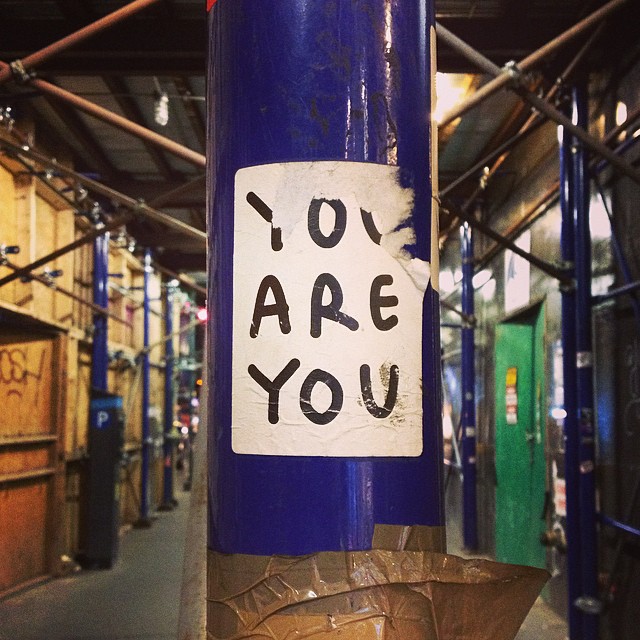 YOU
ARE
YOU
P